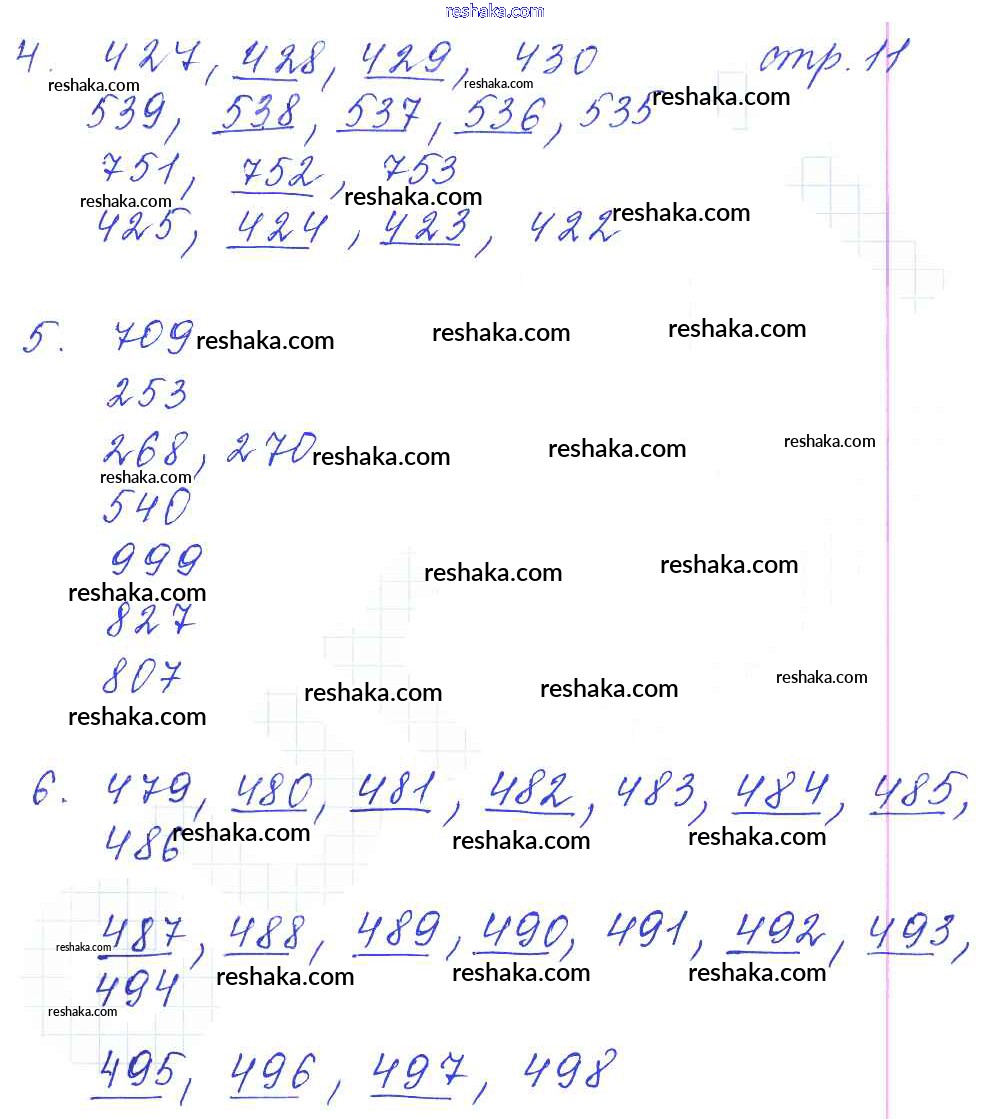 reshaka.com
4. 427, 428, 429, 430 стр. 11
reshaka.com reshaka.com reshaka.com
539, 538, 537, 536, 535
751, 752, 753
reshaka.com reshaka.com reshaka.com
425, 424, 423, 422
5. 709 reshaka.com reshaka.com reshaka.com
253
268, 270 reshaka.com reshaka.com reshaka.com
reshaka.com
540
999 reshaka.com reshaka.com
reshaka.com
827
807 reshaka.com reshaka.com reshaka.com
reshaka.com
6. 479, 480, 481, 482, 483, 484, 485,
486 reshaka.com reshaka.com reshaka.com
487, 488, 489, 490, 491, 492, 493,
reshaka.com reshaka.com reshaka.com reshaka.com
494
reshaka.com
495, 496, 497, 498